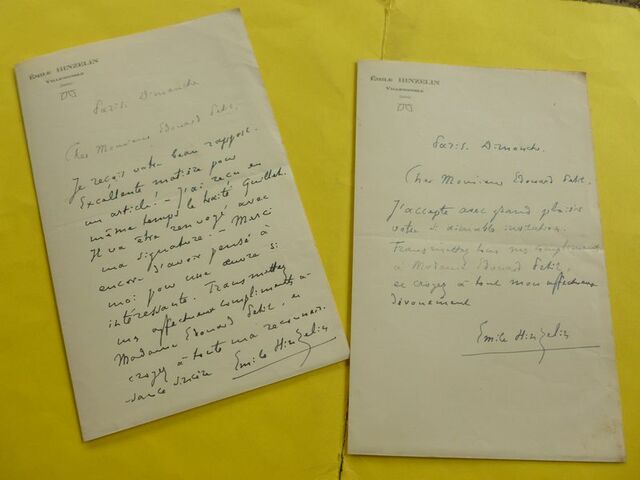 ÉMILE HINZELIN
VILLENNOBLE
Paris. Dimanche
Cher Monsieur Edouard Petit,
Je reçois votre beau rapport.
Excellente matière pour
un article! - J'ai reçu en
même temps le traité Guillot.
Il va être renvoyé avec
ma signature. - Merci
encore d'avoir pensé à
moi pour une œuvre si
intéressante. Transmettez
mes affectueux compliments à
Madame Edouard Petit, et
croyez à toute ma reconnais-
sance sincère Emile Hinzelin
ÉMILE HINZELIN
Paris. Dimanche.
Cher Monsieur Edouard Petit,
J'accepte avec grand plaisir
votre si aimable invitation.
Transmettez tous mes compliments
à Madame Edouard Petit
et croyez à tout mon affectueux
dévouement
Emile Hinzelin